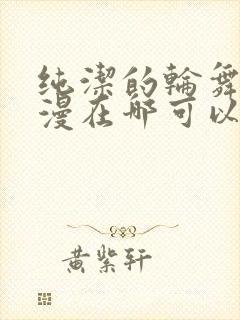 纯潔的輪舞
漫在哪可以
黄紫轩